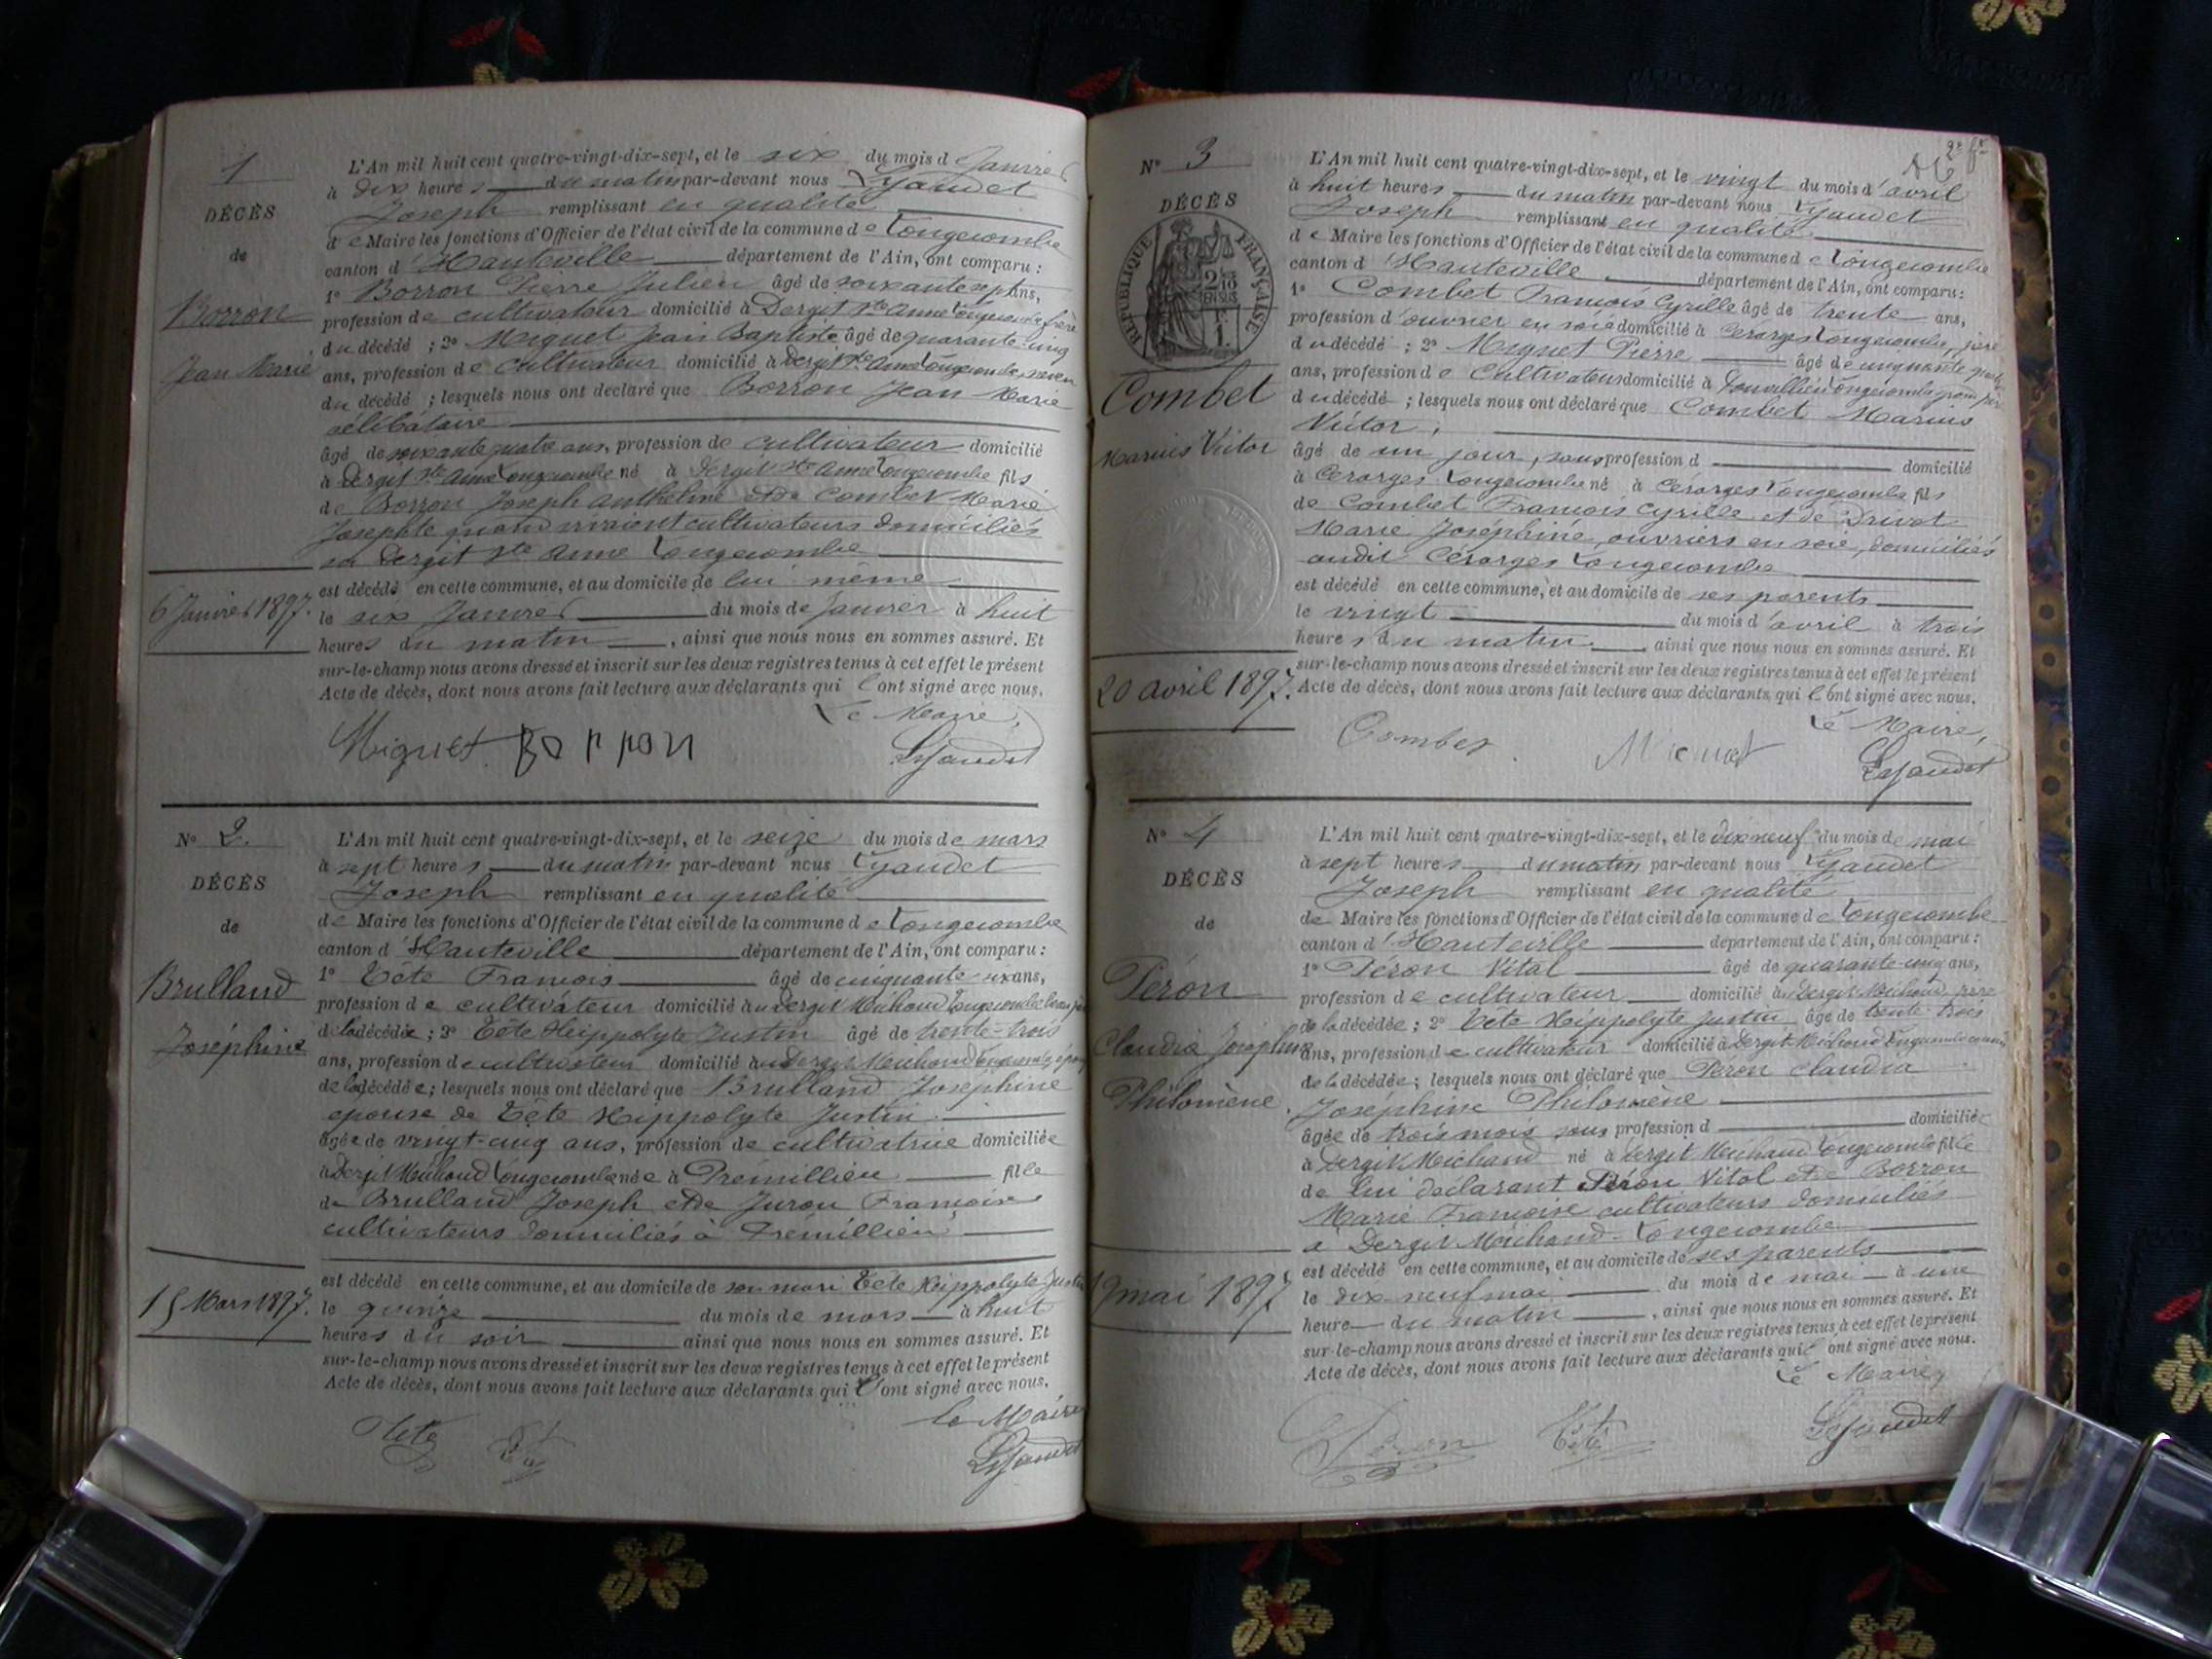 1
DÉCÈS
de
Borron
Jean Marie
6 Janvier 1897.
L'An mil huit cent quatre-vingt-dix-sept, et le six du mois d Janvier
à dix heures du matin par-devant nous Lyaudet
Joseph remplissant en qualité
de Maire les fonctions d'Officier de l'état civil de la commune de Longecombe
canton d'Hauteville département de l'Ain, ont comparu :
1° Borron Pierre Julien âgé de soixante sept ans,
profession de cultivateur domicilié à Dergit Ste Anne Longecombe frère
du décédé ; 2° Miguet Jean Baptiste âgé de quarante-cinq
ans, profession de cultivateur domicilié à Dergit Ste Anne Longecombe, neveu
du décédé ; lesquels nous ont déclaré que Borron Jean Marie
célibataire
âgé de soixante quatre ans, profession de cultivateur domicilié
à Dergit Ste Anne Longecombe né à Dergit Ste Anne Longecombe fils
de Borron Joseph Anthelme et de Combet Marie
Josephte quand vivaient cultivateurs domiciliés
Dergit Ste Anne Longecombe
est décédé en cette commune, et au domicile de lui même
le six Janvier du mois de Janvier à huit
heures du matin, ainsi que nous nous en sommes assuré. Et
sur-le-champ nous avons dressé et inscrit sur les deux registres tenus à cet effet le présent
Acte de décès, dont nous avons fait lecture aux déclarants qui l'ont signé avec nous.
Le Maire,
Miguet Borron Lyaudet
N° 2.
DÉCÈS
de
Brulland
Joséphine
15 Mars 1897.
L'An mil huit cent quatre-vingt-dix-sept, et le seize du mois de mars
à sept heures du matin par-devant nous Lyaudet
Joseph remplissant en qualité
de Maire les fonctions d'Officier de l'état civil de la commune de Longecombe
canton d'Hauteville département de l'Ain, ont comparu :
1° Tête François âgé de cinquante-six ans,
profession de cultivateur domicilié au Dergit Michaud Longecombe beau père
de la décédée ; 2° Tête Hippolyte Justin âgé de trente-trois
ans, profession de cultivateur domicilié au Dergit Michaud Longecombe, époux
de la décédée ; lesquels nous ont déclaré que Brulland Joséphine
épouse de Tête Hippolyte Justin
âgée de vingt-cinq ans, profession de cultivatrice domiciliée
à Dergit Michaud Longecombe née à Prémillieu fille
de Brulland Joseph et de Juron Françoise
cultivateurs domiciliés à Prémillieu
est décédé en cette commune, et au domicile de son mari Tête Hippolyte Justin
le quinze du mois de mars à huit
heures du soir ainsi que nous nous en sommes assuré. Et
sur-le-champ nous avons dressé et inscrit sur les deux registres tenus à cet effet le présent
Acte de décès, dont nous avons fait lecture aux déclarants qui l'ont signé avec nous.
Le Maire
Tête Tête Lyaudet
2e ft
N° 3
DÉCÈS
RÉPUBLIQUE FRANÇAISE
Combet
Marius Victor
20 avril 1897.
L'An mil huit cent quatre-vingt-dix-sept, et le vingt du mois d'avril
à huit heures du matin par-devant nous Lyaudet
Joseph remplissant en qualité
de Maire les fonctions d'Officier de l'état civil de la commune de Longecombe
canton d'Hauteville département de l'Ain, ont comparu :
1° Combet François Cyrille âgé de trente ans,
profession d'ouvrier en soie domicilié à Cérarges Longecombe, père
du décédé ; 2° Miguet Pierre âgé de cinquante
ans, profession de cultivateur domicilié à Longecombe grand père
du décédé ; lesquels nous ont déclaré que Combet Marius
Victor,
âgé de un jour, sans profession d domicilié
à Cérarges Longecombe né à Cérarges Longecombe fils
de Combet François Cyrille et de Drivet
Marie Joséphine, ouvriers en soie, domiciliés
audit Cérarges Longecombe
est décédé en cette commune, et au domicile de ses parents
le vingt du mois d'avril à trois
heures du matin ainsi que nous nous en sommes assuré. Et
sur-le-champ nous avons dressé et inscrit sur les deux registres tenus à cet effet le présent
Acte de décès, dont nous avons fait lecture aux déclarants qui l'ont signé avec nous.
Le Maire,
Combet Miguet Lyaudet
N° 4
DÉCÈS
de
Péron
Claudia Joséphine
Philomène
19 mai 1897
L'An mil huit cent quatre-vingt-dix-sept, et le dix neuf du mois de mai
à sept heures du matin par-devant nous Lyaudet
Joseph remplissant en qualité
de Maire les fonctions d'Officier de l'état civil de la commune de Longecombe
canton d'Hauteville département de l'Ain, ont comparu :
1° Péron Vital âgé de quarante-cinq ans,
profession de cultivateur domicilié à Dergit Michaud, père
de la décédée ; 2° Tête Hippolyte Justin âgé de trente-trois
ans, profession de cultivateur domicilié à Dergit Michaud Longecombe cousin
de la décédée ; lesquels nous ont déclaré que Péron Claudia
Joséphine Philomène
âgée de trois mois sans profession d domiciliée
à Dergit Michaud né à Dergit Michaud Longecombe fille
de lui déclarant Péron Vital et de Borron
Marie Françoise cultivateurs domiciliés
à Dergit Michaud-Longecombe
est décédé en cette commune, et au domicile de ses parents
le dix neuf mai du mois de mai à une
heure du matin, ainsi que nous nous en sommes assuré. Et
sur-le-champ nous avons dressé et inscrit sur les deux registres tenus à cet effet le présent
Acte de décès, dont nous avons fait lecture aux déclarants qui l'ont signé avec nous.
Le Maire,
Péron Tête Lyaudet